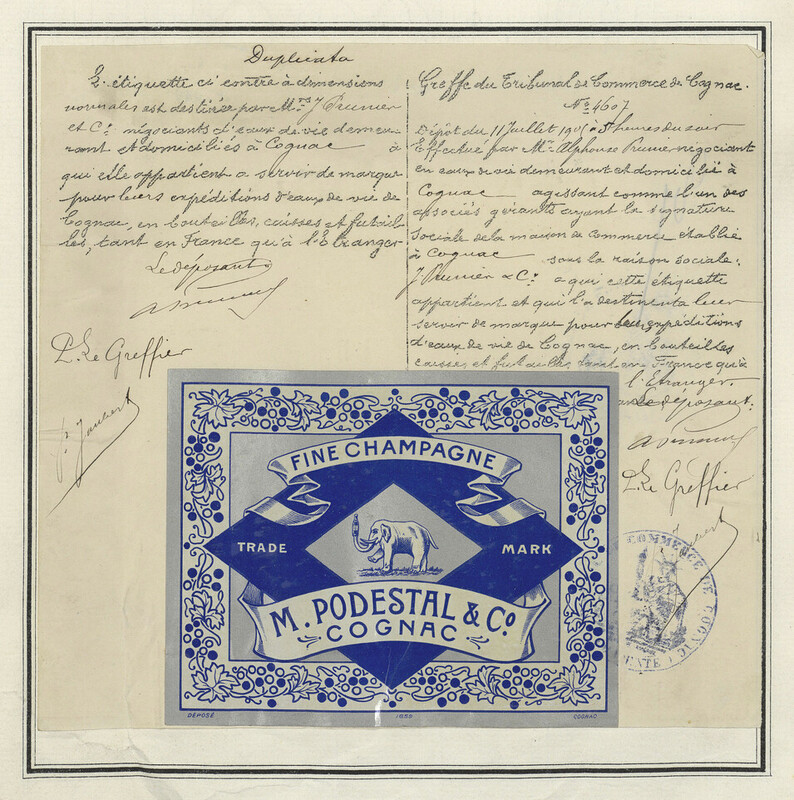 Duplicata
L'étiquette ci contre à dimensions
normales est destinée par Mrs J Prunier
et Co. négociants d'eaux de vie demeu-
rant et domiciliés à Cognac à
qui elle appartient a servir de marque
pour leurs expéditions d'eaux de vie de
Cognac, en bouteilles, caisses et futail-
les, tant en France qu'à l'Etranger
Le déposant
P. Le Greffier
Joubert
Greffe du Tribunal de Commerce de Cognac.
No 4607
Dépôt du 11 Juillet à heures du soir
Effectué par Mr. Alphonse Prunier négociant
en eaux de vie demeurant et domicilié à
Cognac agissant comme l'un des
associés gérants ayant la signature
sociale de la maison de Commerce établie
à Cognac sous la raison sociale:
J. Prunier & Co. a qui cette étiquette
appartient et qui l'a destine à leur
servir de marque pour leurs expéditions
d'eaux de vie de Cognac, en bouteilles
caisses et futailles, tant en France qu'à
l'Etranger.
Le déposant.
P. Le Greffier
COMMERCE DE COGNAC
FINE CHAMPAGNE
TRADE MARK
M. PODESTAL & Co
COGNAC
DÉPOSÉ 1659 COGNAC